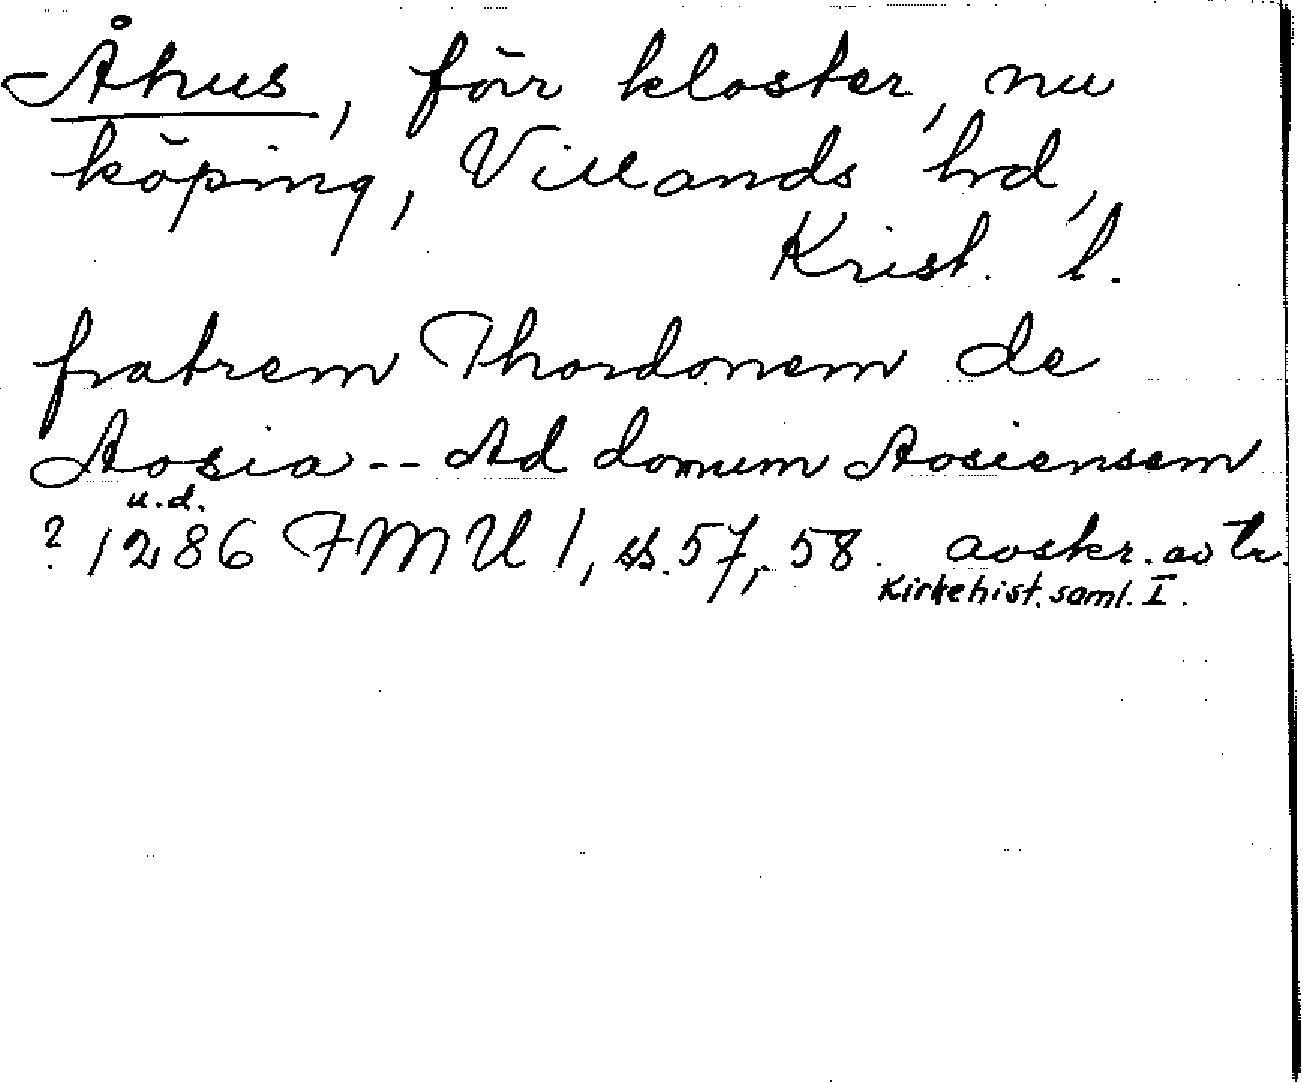 Åhus, förr kloster, nu
köping, Villands hrd,
Krist. l.
fratrem Thordonem de
Aosia -- Ad domum Aosiensem
u.d.
? 1286 FMU 1, ss. 57, 58 avskr. av tr.
Kirkehist. saml. I.